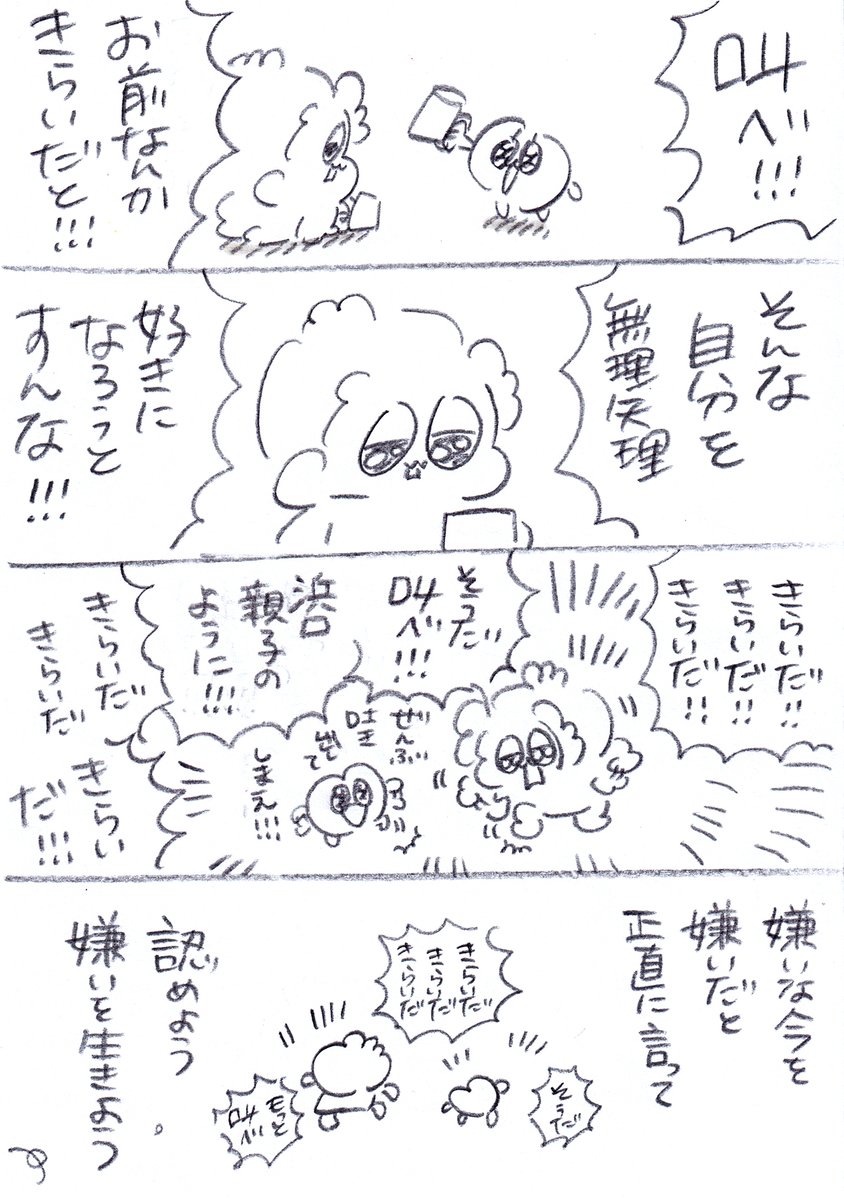 叫べ!!!
お前なんか
きらいだと!!!
そんな
自分を
無理矢理
好きに
なろうと
すんな!!!
きらいだ!!
きらいだ!!
きらいだ!!
そうだ
叫べ!!!
浜口
親子の
ように!!!
ぜんぶ
吐き
出して
しまえ!!!
きらいだ
きらいだ
きらい
だ!!!
嫌いな今を
嫌いだと
正直に言って
そうだ
きらいだ
きらいだ
きらいだ
もっと
叫べ
認めよう
嫌いを生きよう